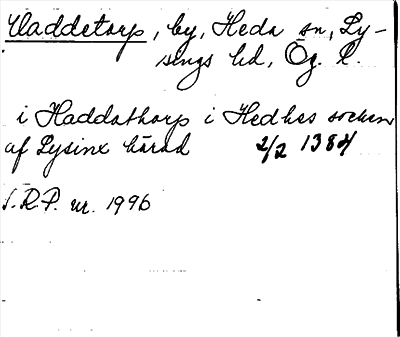 Vaddetorp, by, Heda sn, Ly-
sings hd, Ög. l.
i Haddathorp i Hedhes socken
af Lysinx härad 2/2 1384
S.R.P. nr. 1996